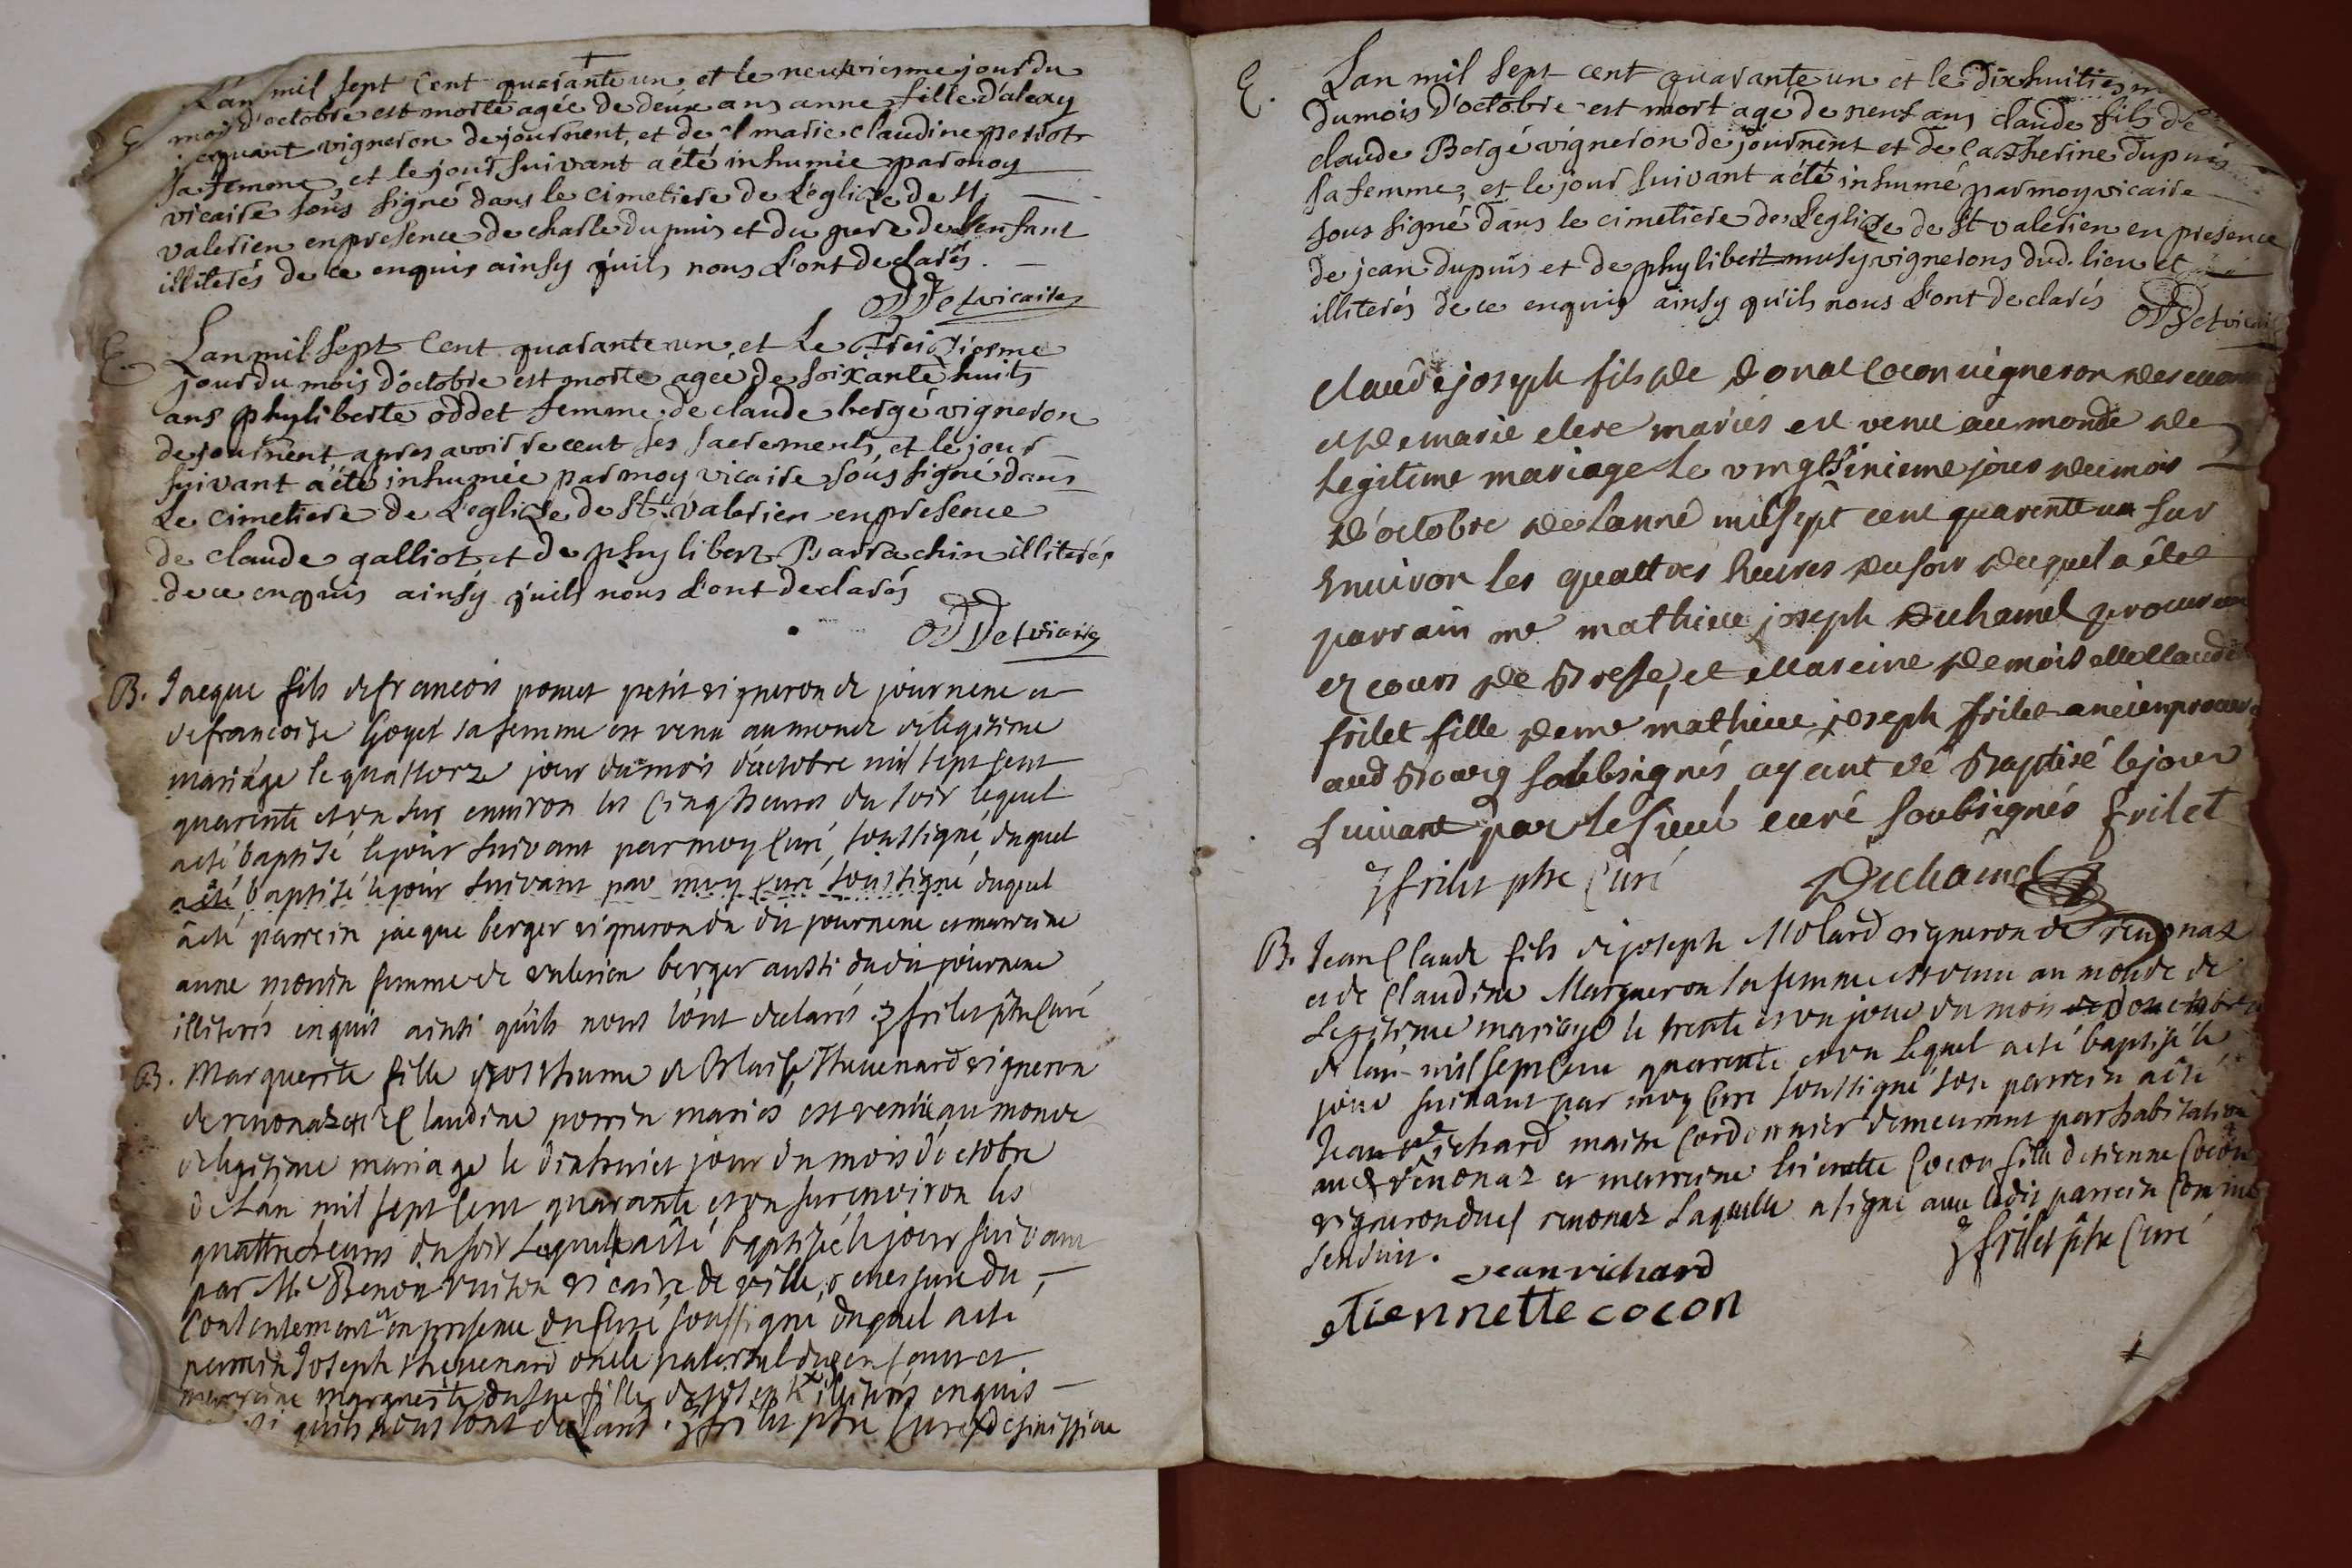 +
L'an mil sept Cent quarante un, et le neuviesme jour du
E mois d'octobre est morte agée de deux ans anne fille d'alexy
vigneron de journent, et de marie claudine perrot
sa femme, et le jour suivant a été inhumée par moy
vicaire sous signé dans le cimetiere de L'eglize de st
valerien en presence de charle dupuis et du pere de l'enfant
illiterés de ce enquis ainsy qu'ils nous l'ont declarés.
ODDet vicaire
E. Lan mil sept Cent quarante un, et Le treiziesme
jour du mois d'octobre est morte agée de soixante huits
ans phyliberte oddet femme de claude bergé vigneron
de journent, apres avoir receut ses sacrements, et le jour
suivant a été inhumée par moy vicaire sous signé dans
Le cimetiere de L'eglize de St. valerien en presence
de claude galliot et de phylibert Barrachin illiterés
de ce enquis ainsy qu'ils nous l'ont declarés
ODDet vicaire
B. Jacque fils de francois ponut petit vigneron de journene et
de francoise Goyet sa femme est venu au monde de legitime
mariage le quattorze jour du mois d'octobre mil sept cent
quarente et un sur environ les Cinq heures du soir lequel
a eté baptisé le jour suivant par moy Curé soussigné, duquel
a eté baptisé le jour suivant par moy Curé soussigné duquel
a eté parrein jacque berger vigneron du dit journene et marreine
anne morin femme de valerien berger aussi dudit journene
illiterés enquis ainsi qu'ils nous l'ont declarés. J frilet ptre Curé
B. Marguerite fille posthume de Blaise Thevenard vigneron
de revonaz et de Claudine perrin mariés est venüe au monde
de legitime mariage le dixhuict jour du mois d'octobre
de L'an mil sept cent quarante et un sur environ les
quattre heures du soir Laquelle a eté baptisée le jour suivant
par Mre Benoit vuiton vicaire de ville, du
Contentement et en presence du Curé soussigné duquel a eté
parrein Joseph thevenard oncle paternel du enfant et
marreine marguerite fille de joseph illiterés enquis
qu'ils nous l'ont declarés. J frilet ptre Curé
E. Lan mil sept cent quarante un et le dixhuitiesm
du mois d'octobre est mort agé de neuf ans claude fils de
claude Bergé vigneron de journent et de Catherine dupuis
sa femme, et le jour suivant a été inhumé par moy vicaire
sous signé dans le cimetiere de L'eglize de St valerien en presence
de jean dupuis et de phylibert musy vignerons dud. lieu et
illiterés de ce enquis ainsy qu'ils nous l'ont declarés ODDet vicai
claude joseph fils de Donat Cocon vigneron de
et de marie clere mariés est venu au monde de
legitime mariage le vingtsixieme jour du mois
d'octobre de lanné mil sept cent quarente un sur
environ les quattres heures du soir duquel a étet
parrain me mathieu joseph Duhamel procureur
ez cours de Bresse, et Mareine demoiselle Claudi
frilet fille de me mathieu joseph frilet ancien procur
aud Bourg soubsignés ayant eté Baptisé le jour
suivant par le sieur curé soubsignés frilet
J frilet ptre Curé Duhamel
B. Jean Claude fils de joseph Molard vigneron de revonaz
et de Claudine Margueron sa femme est venu au monde de
Legitime mariage le trente et un jour du mois de d'octobre
de lan mil sept Cent quarente et un Lequel a eté baptisé le
jour suivant par moy Curé soussigné son parrein a eté
Jean Richard maitre Cordonnier demeurant par habitation
aud revonaz et marreine etienette Cocon fille d'etienne Cocon
vigneron dud revonaz Laquelle a signé avec ledit parrein Comme
s'ensuit. J frilet ptre Curé
Jean richard
etiennette cocon